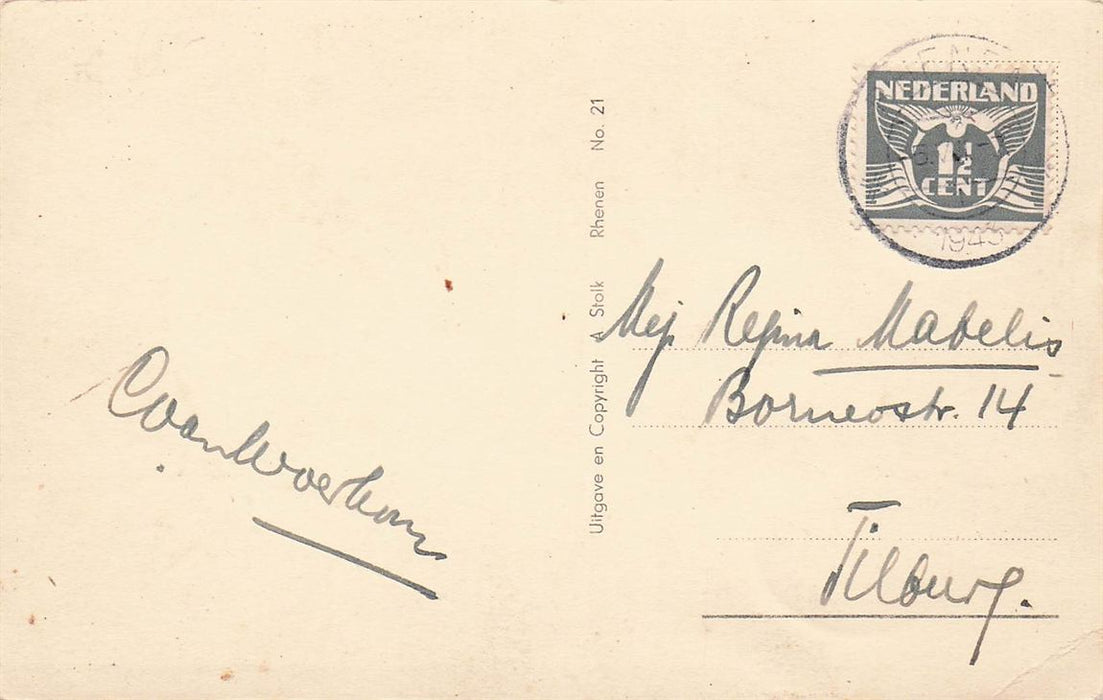 NEDERLAND
1½
CENT
1943
Uitgave en Copyright A Stolk Rhenen No. 21
Mej Regina Mabelis
Borneostr. 14
Tilburg.